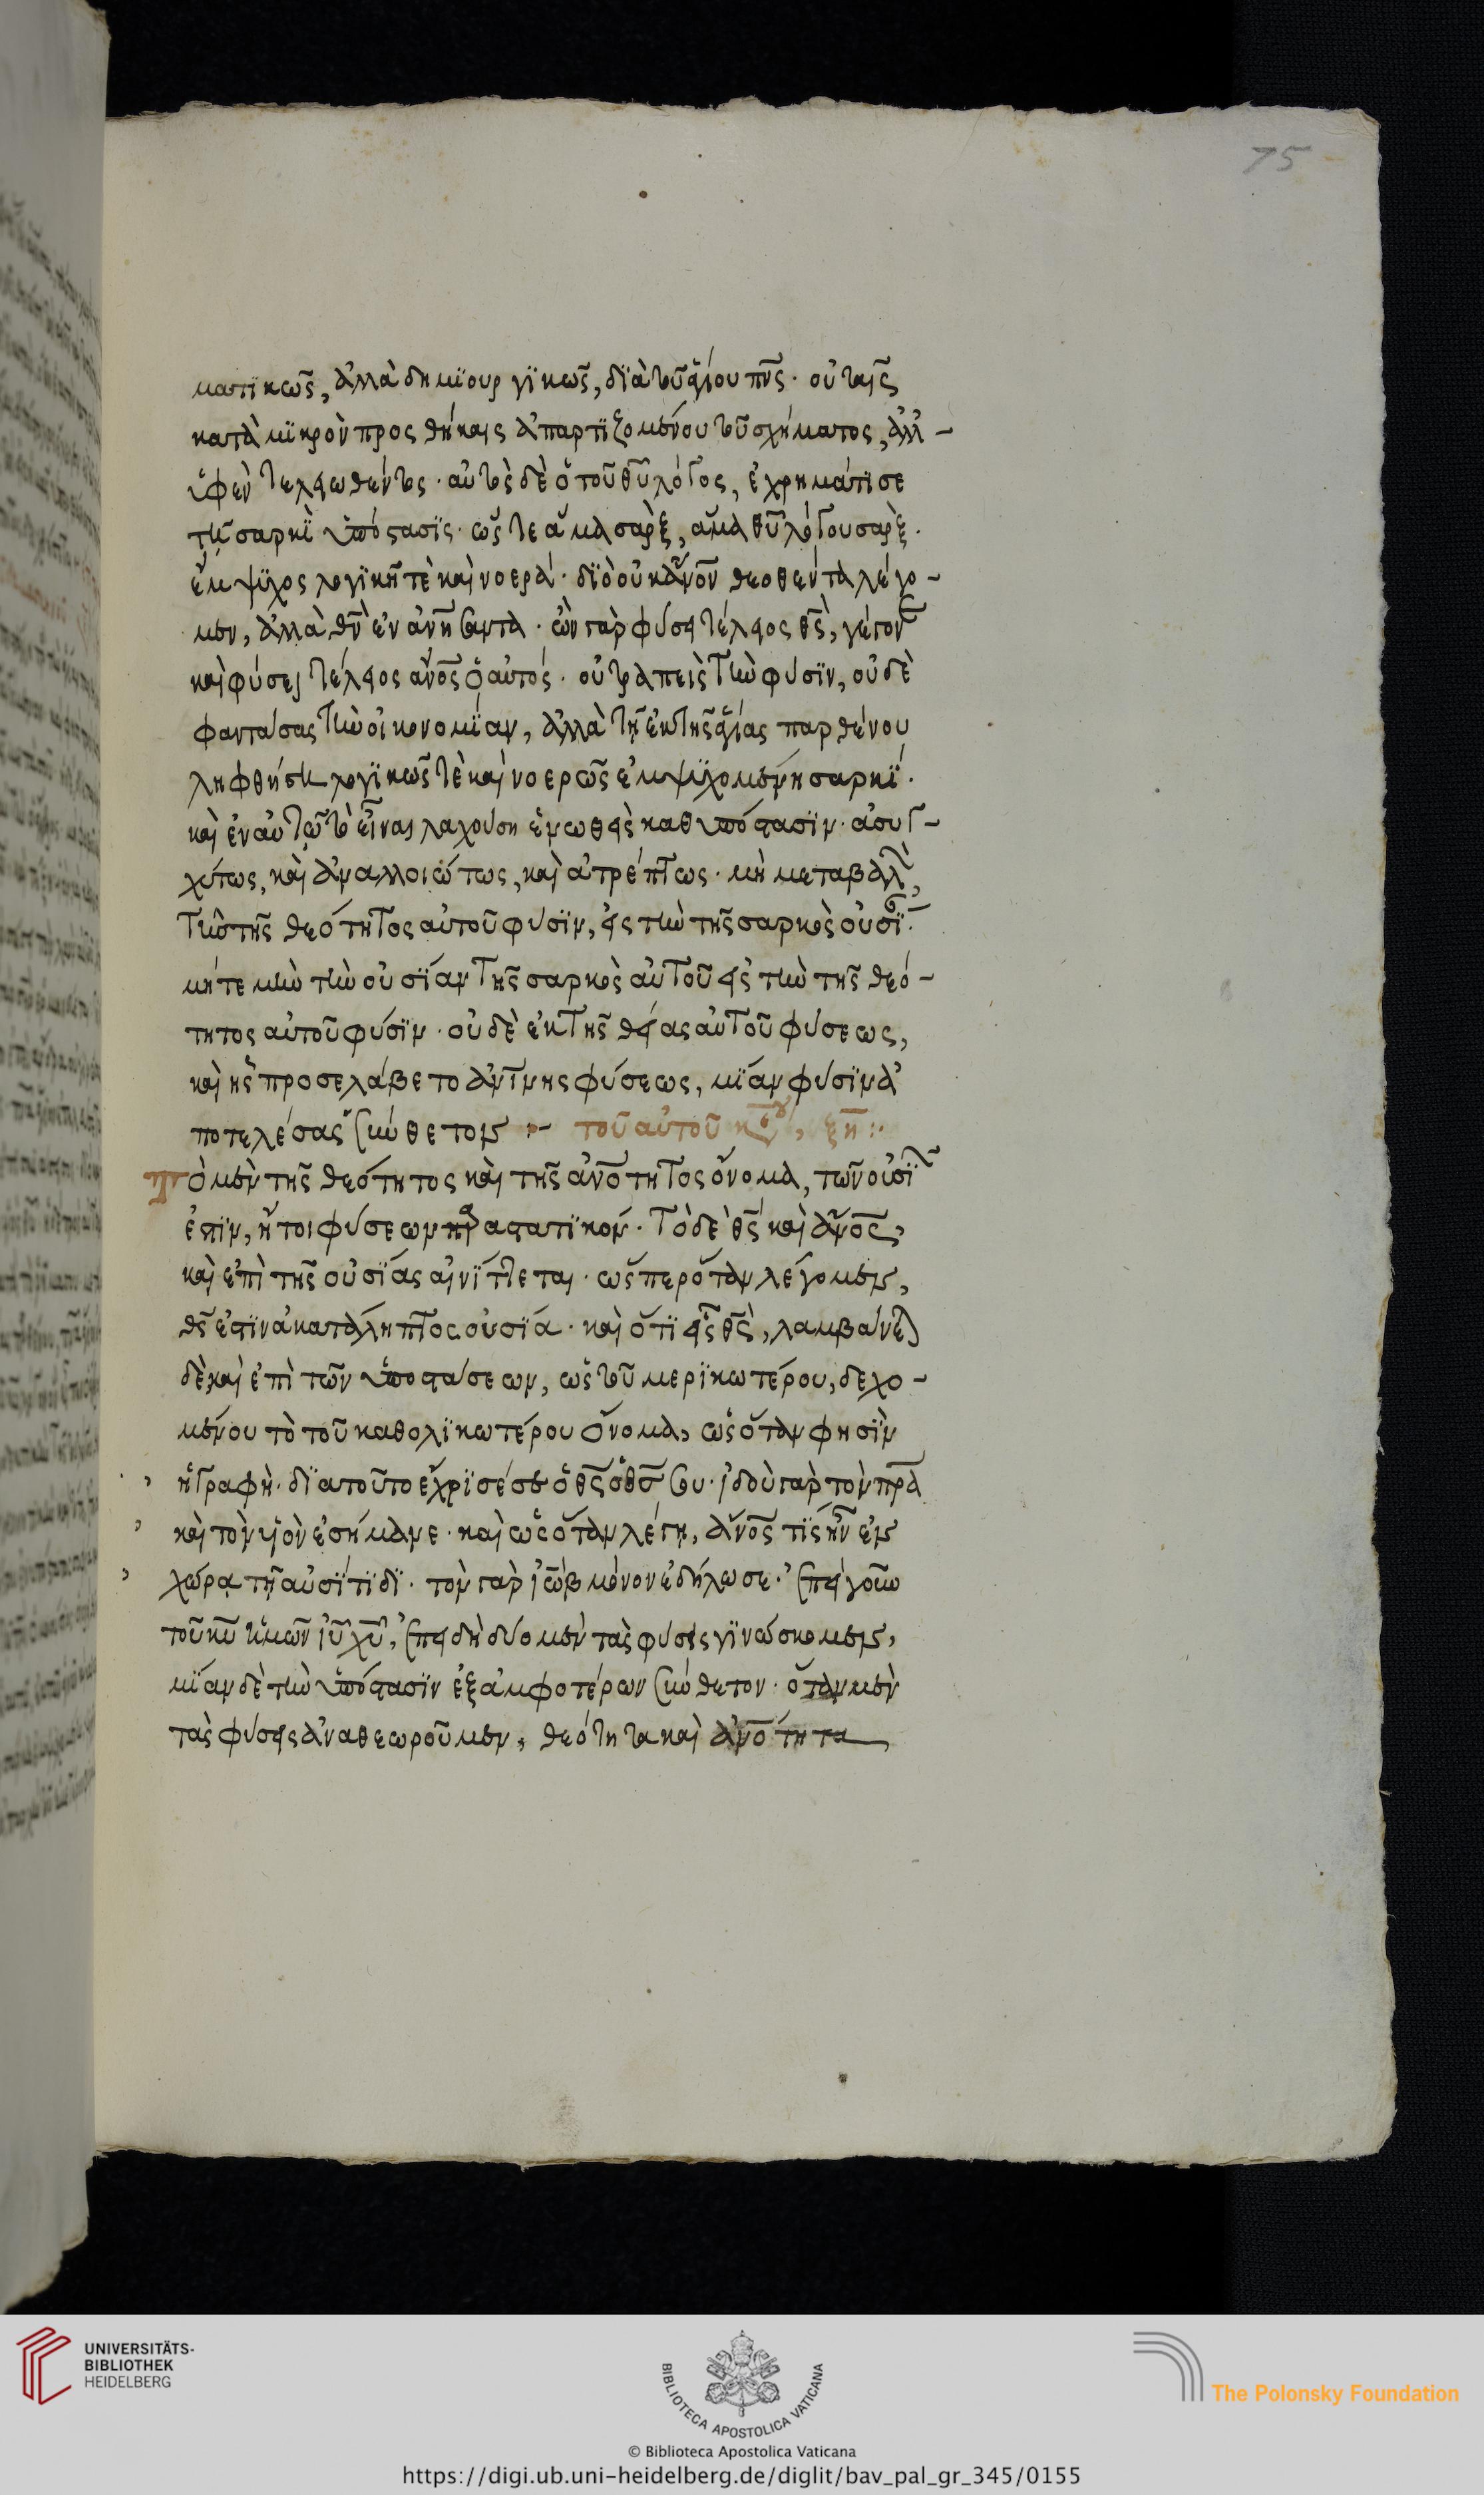 75
ματϊκῶς, ἀλλὰ δημϊουργϊκῶς, δϊὰ τοῦ ἁγίου πν̅ς· οὐ ταῖς
κατὰ μϊκρὸν προςθήκαις ἀπαρτϊζομένου τοῦ σχήματος, ἀλλ-
ὑφὲν τελειωθέντος· αὐτὸς δὲ ὁ τοῦ θυ̅ λόγος, ἐχρημάτϊσε
τῇ σαρκῒ ὑπόστασϊς· ὥς τε ἅμα σὰρξ, ἅμα θυ̅ λόγου σὰρξ·
ἔμψϋχος λογϊκή τὲ καὶ νοερά· δϊὸ οὐκ ἄνο̅ν θεοθέντα λέγο-
μεν, ἀλλὰ θν̅ ἐνανήσαντα· ὢν γὰρ φύσει τέλειος θς̅, γέγον
καὶ φύσει τέλειος ἄνο̅ς ὁ αὐτός· οὐ τραπεὶς τὴν φύσϊν, οὐδὲ
φαντάσας τὴν οἰκονομϊαν, ἀλλὰ τῇ ἐκ τῆς ἁγίας παρθένου
ληφθήση λογϊκῶς τὲ καὶ νοερῶς ἐμψϋχομένη σαρκϊ·
καὶ ἐν αὐτῶ τὸ εἶναι λαχούση ἑνωθεὶς καθ ὑπόστασϊν· ἀσυγ-
χύτως, καὶ ἀναλλοιώτως, καὶ ἀτρέπτως· μὴ μεταβαλὼ
τὴν τῆς θεότητος αὐτοῦ φύσϊν, εἰς τὴν τῆς σαρκὸς οὐσϊ·
μήτε μὴν τὴν οὐσϊαν τῆς σαρκὸς αὐτοῦ εἰς τὴν τῆς θεό-
τητος αὐτοῦ φύσϊν· οὐδὲ ἐκ τῆς θείας αὐτοῦ φύσεως,
καὶ ἧς προσελάβετο ἀν̅ΐνης φύσεως, μϊαν φύσϊν ἀ
ποτελέσας σύνθετον :- τοῦ αὐτοῦ κ, ξη :·
Τὸ μὲν τῆς θεότητος καὶ τῆς ἀνο̅τητος ὄνομα, τῶν οὐσϊ
ἐστϊν, ἤτοι φύσεων παραστατϊκόν· Τὸ δὲ θς̅ καὶ ἄνο̅ς,
καὶ ἐπὶ τῆς οὐσϊας αἰνΐττεται· ὥσπερ ὅταν λέγομεν,
θς̅ ἐστϊν ἀκατάληπτος οὐσϊα· καὶ ὅτϊ εἷς θς̅, λαμβάνεται
δὲ καὶ ἐπὶ τῶν ὑποστάσεων, ὡς τοῦ μερϊκωτέρου, δεχο-
μένου τὸ τοῦ καθολϊκωτέρου ὄνομα, ὡς ὅταν φησϊν
ἡ γραφὴ· δϊατοῦτο ἔχρϊσέ σε ὁ θς̅ ὁ θς̅ σου· ἰδοὺ γὰρ τὸν πρ̅α
καὶ τὸν υἱὸν ἐσήμανε· καὶ ὡς ὅταν λέγη, ἄνο̅ς τϊς ἦν ἐν
χώρα τῇ αὐσΐτϊδϊ· τὸν γὰρ ἰὼβ μόνον ἐδήλωσε· ἐπεὶ γοῦν
τοῦ κυ̅ ἡμῶν ιυ̅ χυ̅, ἐπειδὴ δύο μὲν τὰς φύσεις γϊνώσκομεν,
μϊαν δὲ τὴν ὑπόστασϊν ἐξ ἀμφοτέρων σύνθετον· ὅταν μὲν
τὰς φύσεις ἀναθεωροῦμεν, θεότητα καὶ ἀνο̅τητα
UNIVERSITÄTS-
BIBLIOTHEK
HEIDELBERG
BIBLIOTECA APOSTOLICA VATICANA
The Polonsky Foundation
© Biblioteca Apostolica Vaticana
https://digi.ub.uni-heidelberg.de/diglit/bav_pal_gr_345/0155